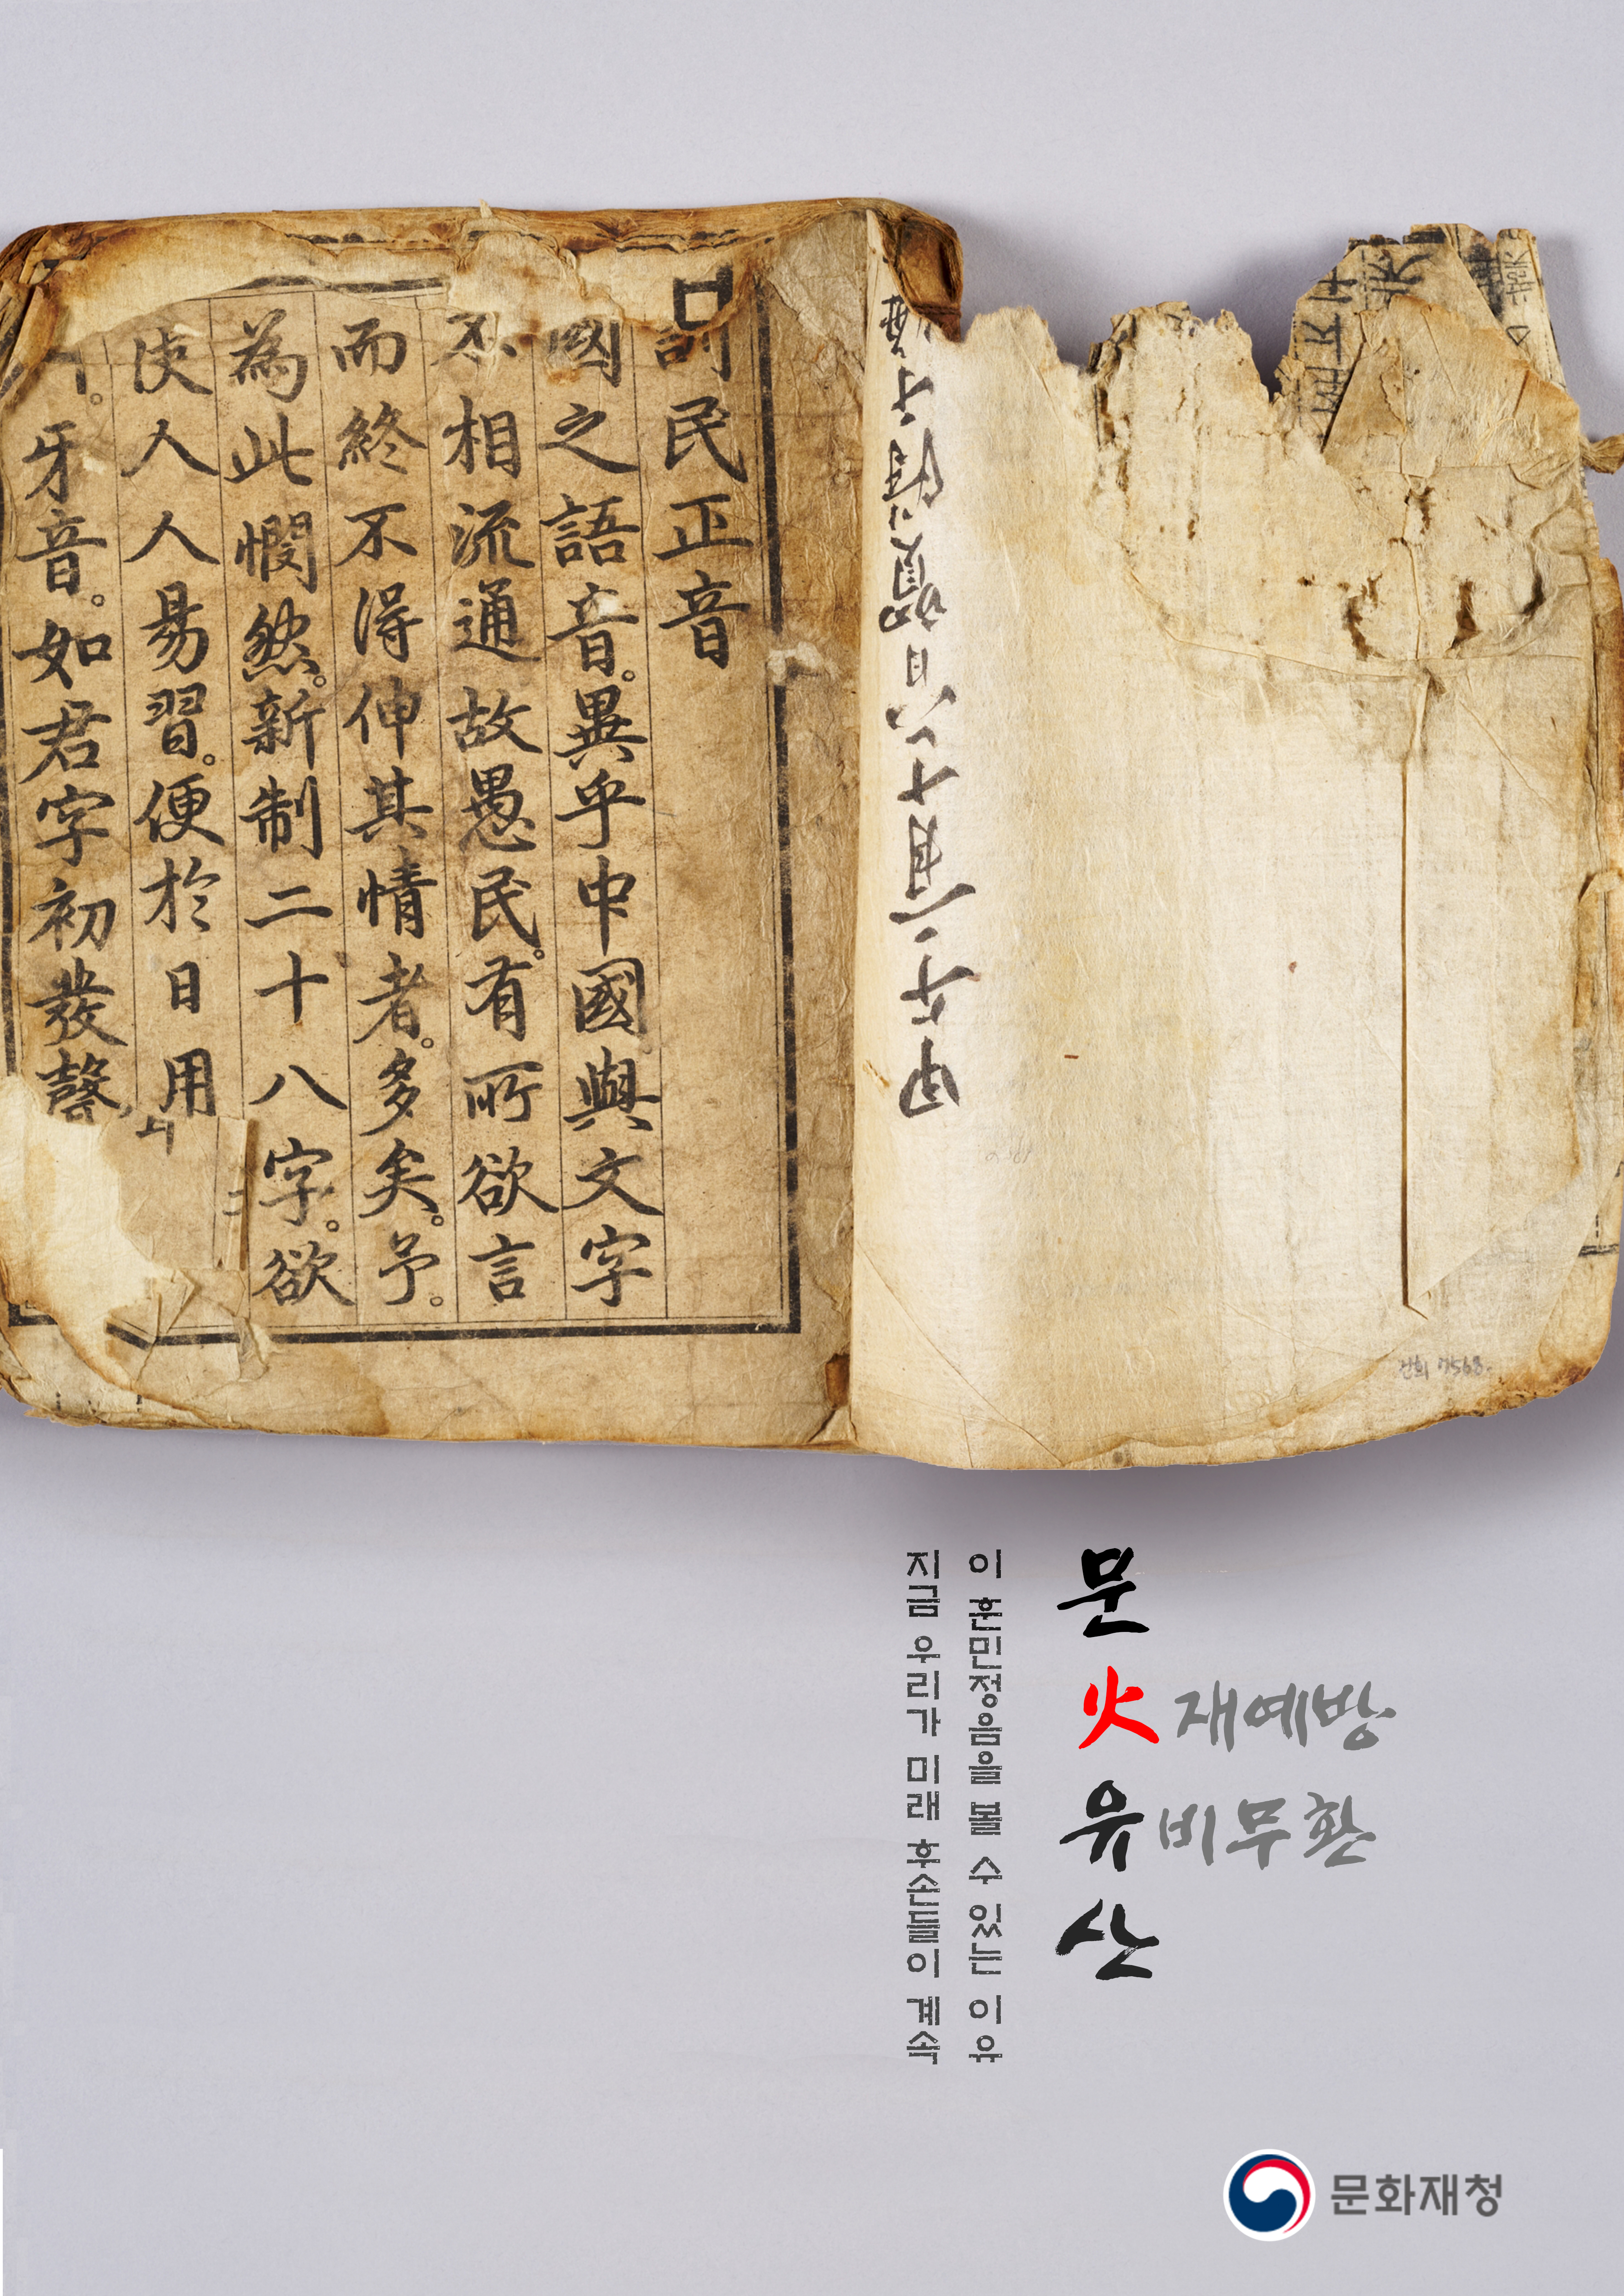 訓民正音
國之語音。異乎中國與文字
不相流通故愚民。有所欲言
而終不得伸其情者。多矣。予。
為此憫然。新制二十八字。欲
使人人易習。便於日用
ㄱ。牙音。如君字初發聲
문
火재예방
유비무환
산
이 훈민정음을 볼 수 있는 이유
지금 우리가 미래 후손들이 계속
문화재청